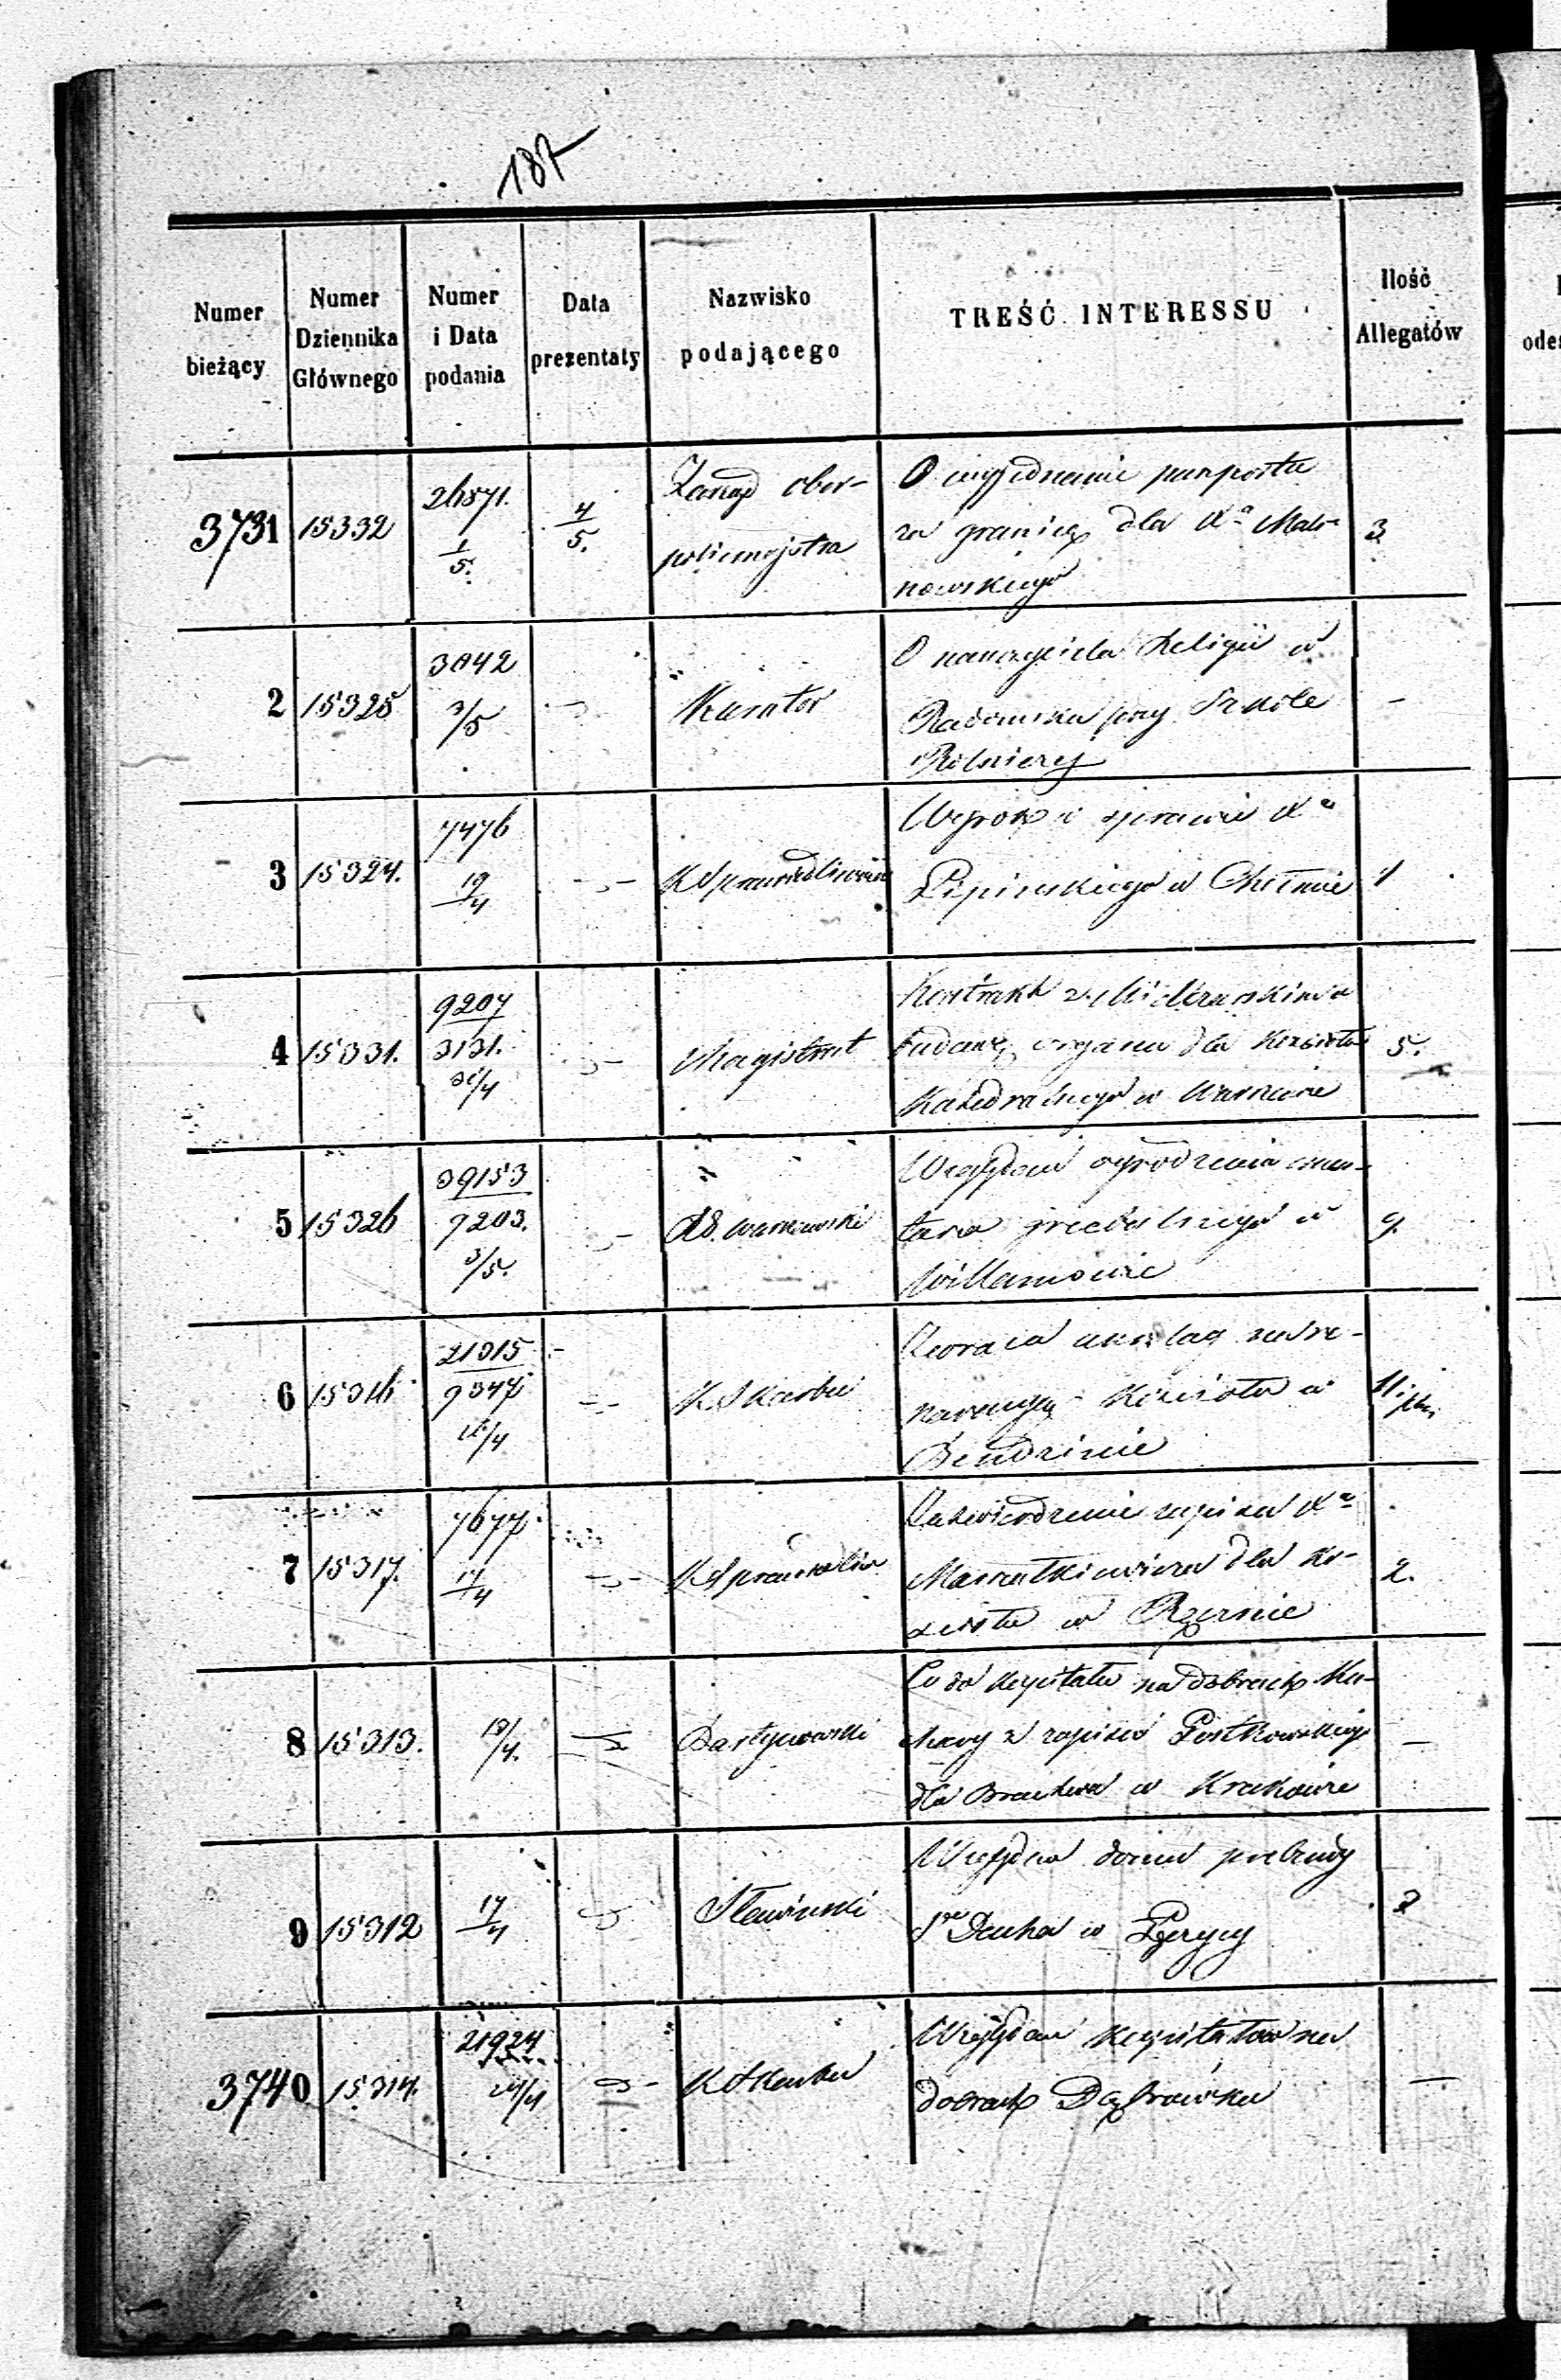 187
Numer bieżący
Numer Dziennika Głównego
Numer i Data podania
Data prezentaty
Nazwisko podającego
TREŚĆ INTERESSU
Ilość Allegatów
3731 15332 26871. 1/5. 4/5. Zarząd ober-
policmajstra
O wyjednanie paszportu
za granicę dla Xa Mali-
nowskiego
3
2 15325 3042 3/5 Kurator
O nauczyciela Religii w
Radomsku przy Szkole
Rolniczej
-
3 15324. 7476 19/4 K Sprawiedliwości
Wyrok w sprawie Xa
Lipińskiego w Chełmie
1
4 15331. 9207 3131. Magistrat
Kontrakt z
budowę organu dla Kościoła
Katedralnego w Warszawie
5.
5 15326 39153 9203. 3/5. Rd. warszawski
Względem ogrodzenia cmen-
tarza grzebalnego w
Willanowie
9.
6 15316 21315 9347 K Skarbu
restau-
racyę Kościoła w
Bendzinie
11
7 15317. 7677. 17/4 K Sprawiedliw
Zatwierdzenie zapisu Xa
dla Ko-
ścioła w
2.
8 15313. 19/4.
Co do kapitału na dobrach
z zapisów
dla Bractwa w Krakowie
—
9 15312 17/4 Sławiński
Względem domu prebendy
Sgo Ducha w Łęczycy
2
3740 15314. 21924 K Skarbu
Względem kapitałów na
dobrach Dąbrówka
—